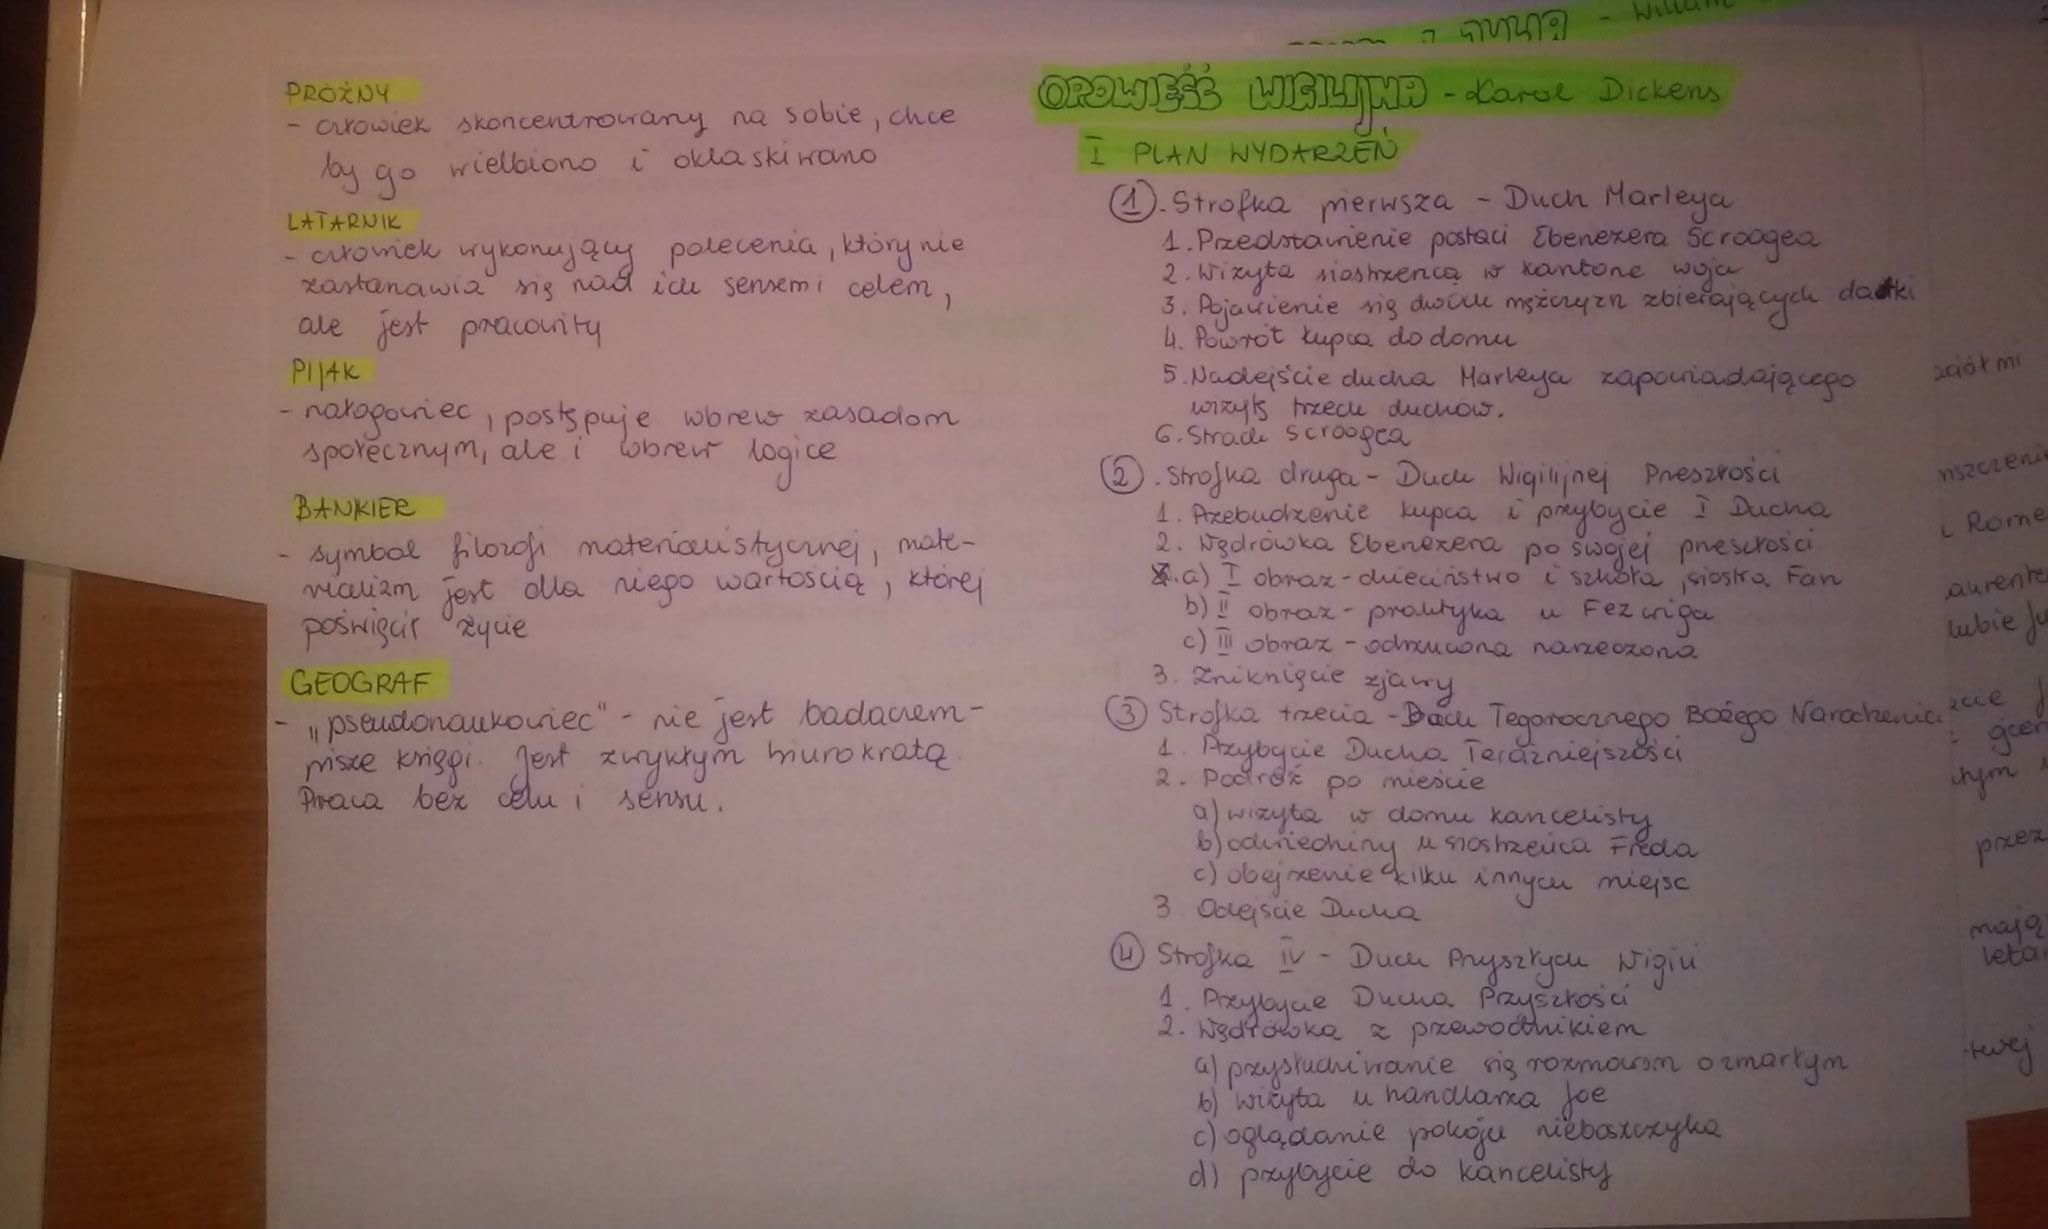 PRÓŻNY
- człowiek skoncentrowany na sobie, chce
by go wielbiono i oklaskiwano
LATARNIK
- człowiek wykonujący polecenia, który nie
zastanawia się nad ich sensem i celem,
ale jest pracowity
PIJAK
- nałogowiec, postępuje wbrew zasadom
społecznym, ale i wbrew logice
BANKIER
- symbol filozofi materialistycznej, mate-
rializm jest dla niego wartością, której
poświęcił życie
GEOGRAF
- „pseudonaukowiec" - nie jest badaczem -
pisze księgi. Jest zwykłym biurokratą.
Praca bez celu i sensu.
OPOWIEŚĆ WIGILIJNA - Karol Dickens
I PLAN WYDARZEŃ
1. Strofka pierwsza - Duch Marleya
1. Przedstawienie postaci Ebenezera Scroogea
2. Wizyta siostrzeńca w kantorze wuja
3. Pojawienie się dwóch mężczyzn zbierających datki
4. Powrót kupca do domu
5. Nadejście ducha Marleya zapowiadającego
wizytę trzech duchów.
6. Strach Scroogea
2. Strofka druga - Duch Wigilijnej Przeszłości
1. Przebudzenie kupca i przybycie I Ducha
2. Wędrówka Ebenezera po swojej przeszłości
a) I obraz - dzieciństwo i szkoła, siostra Fan
b) II obraz - praktyka u Fezwiga
c) III obraz - odrzucona narzeczona
3. Zniknięcie zjawy
3 Strofka trzecia - Duch Tegorocznego Bożego Narodzenia
1. Przybycie Ducha Teraźniejszości
2. Podróż po mieście
a) wizyta w domu kancelisty
b) odwiedziny u siostrzeńca Freda
c) obejrzenie kilku innych miejsc
3 Odejście Ducha
4 Strofka IV - Duch Przyszłych Wigilii
1. Przybycie Ducha Przyszłości
2. Wędrówka z przewodnikiem
a) przysłuchiwanie się rozmowom o zmarłym
b) wizyta u handlarza Joe
c) oglądanie pokoju nieboszczyka
d) przybycie do kancelisty